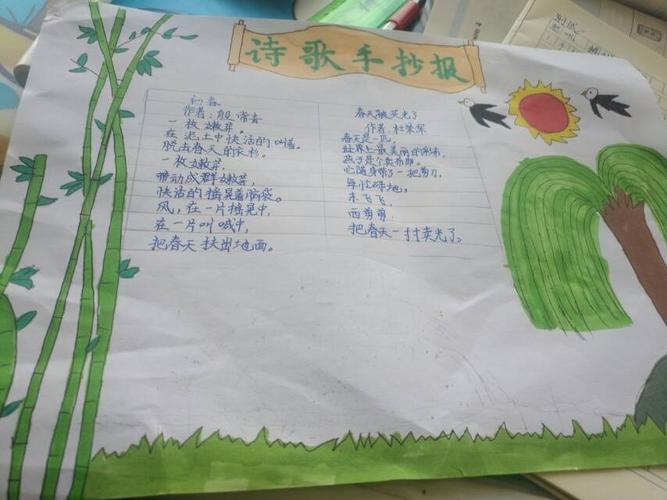 诗歌手抄报
初春
作者:殷常青
一枚嫩芽。
在泥土中快活的叫喊。
脱去春天的衣衫。
一枚嫩芽,
带动成群嫩芽,
快活的摇晃着脑袋。
风,在一片摇晃中,
在一片叫喊中,
把春天扶出地面。
春天被卖光了
作者:杜荣琛
春天是一匹,
世界上最美丽的彩布,
燕子是个卖布郎。
它随身带了一把剪刀,
每忙碌地,
东飞飞,
西剪剪,
把春天一寸寸卖光了。